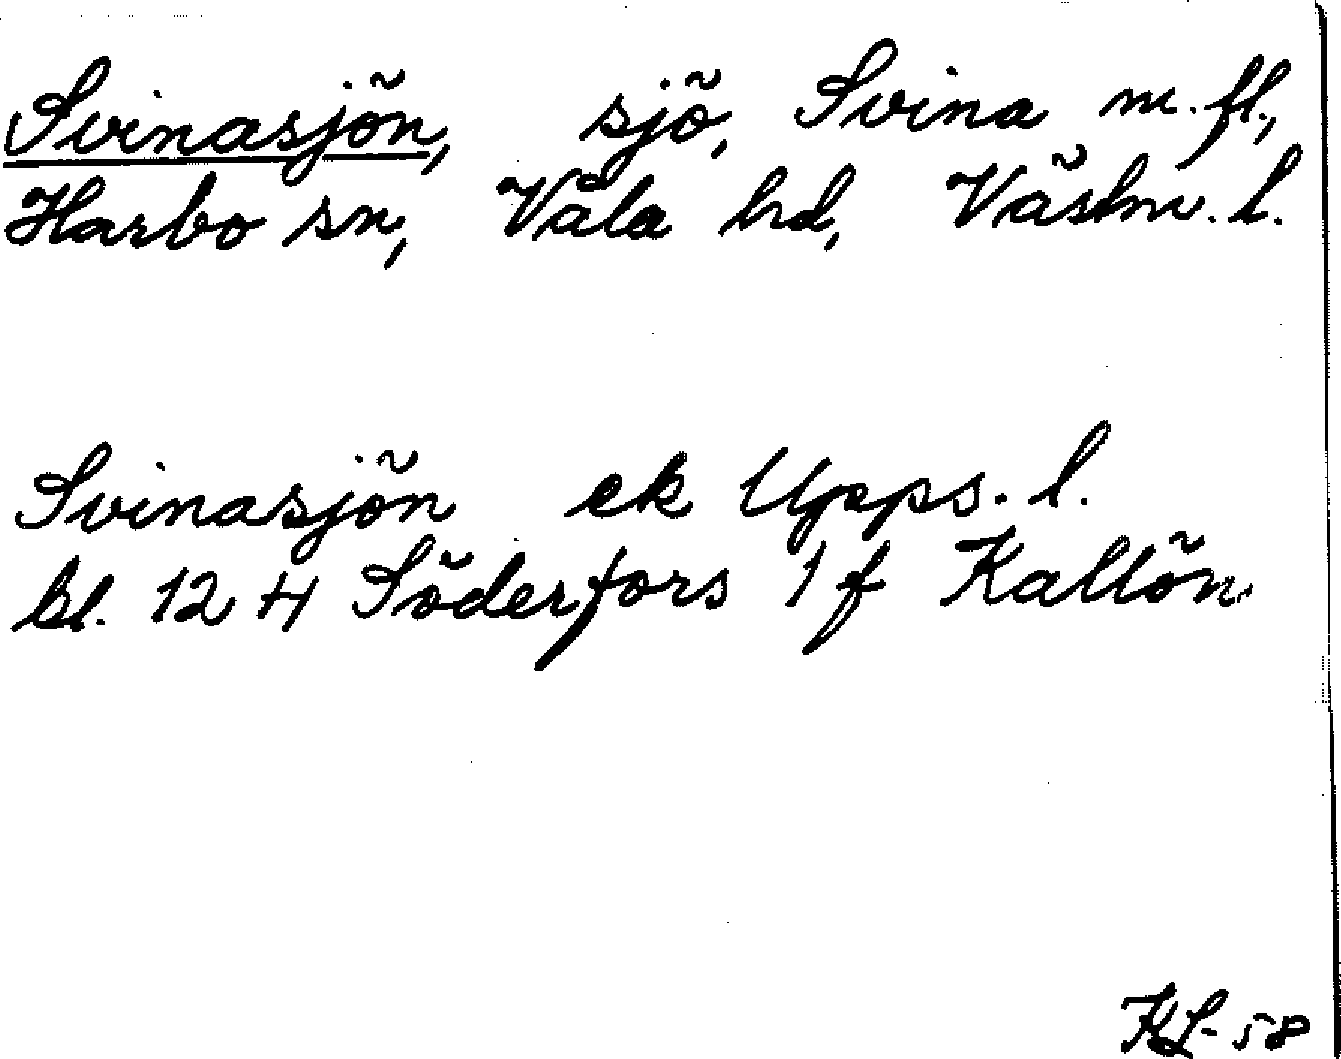 Svinasjön, sjö, Svina m.fl.,
Harbo sn, Våla hd, Västm. l.
Svinasjön ek Upps. l.
bl. 124 Söderfors 1 f Kallön
KL-58